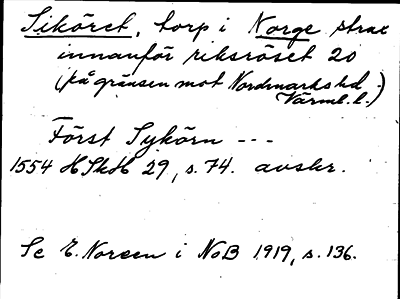 Siköret, torp i Norge strax
innanför riksröset 20
(på gränsen mot Nordmarks hd.
Värml. l.)
Först Sykörn ---
1554 HSkH 29, s. 74. avskr.
Se E. Noreen i NoB 1919, s. 136.